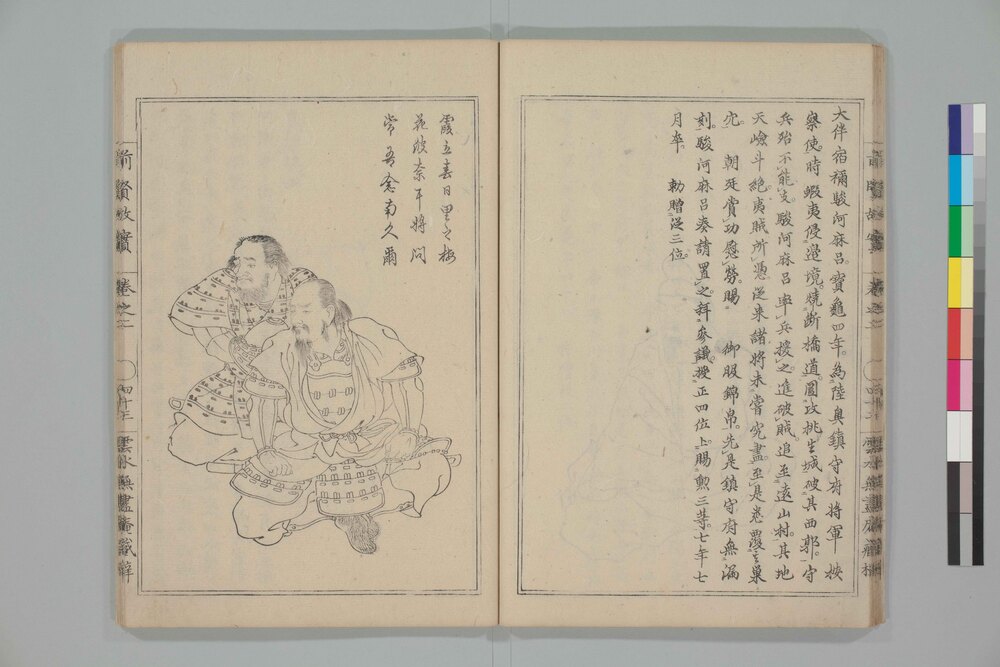 大伴宿禰駿河麻呂寶龜四年。為陸奥鎮守府將軍按
察使時蝦夷侵邉境。燒斷橋道圍攻桃生城破其西郭。守
兵殆不能支。駿河麻呂率兵援之。進破賊追至遠山村。其地
天嶮斗絶。夷賊所憑。從来諸將未嘗究盡。至是悉覆其巢
穴。朝廷賞功慰勞。賜御服錦帛。先是鎮守府無漏
刻。駿河麻呂奏請置之。拜参議授正四位上賜勲三等。七年七
月卒。勅贈從三位。
霞立春日里之梅
花波奈尓將問
常吾念南久爾
前賢故實
卷之二
四十三
雲水無盡庵藏